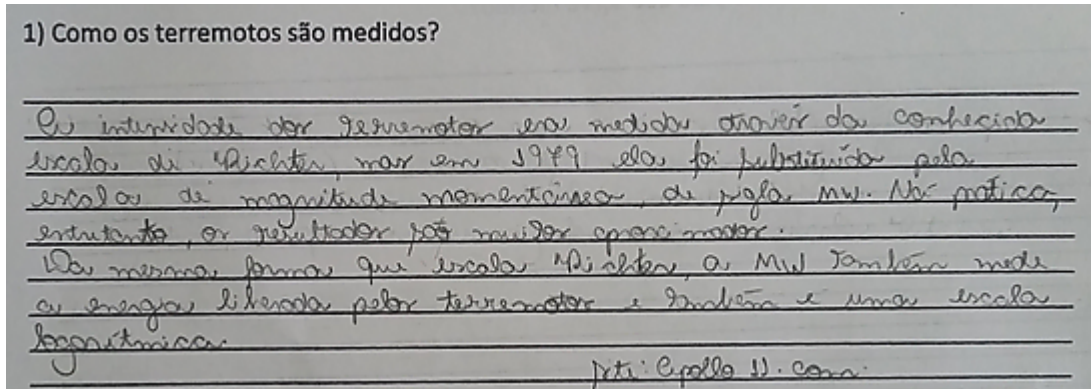 1) Como os terremotos são medidos?
A intensidade dos terremotos era medida através da conhecida
escala de Richter, mas em 1979 ela foi substituída pela
escala de magnitude momentânea, de sigla MW. Na prática,
entretanto, os resultados são muitos aproximados.
Da mesma forma que escala Richter, a MW também mede
a energia liberada pelos terremotos e também é uma escala
logarítmica.
site: Apollo 11.com.